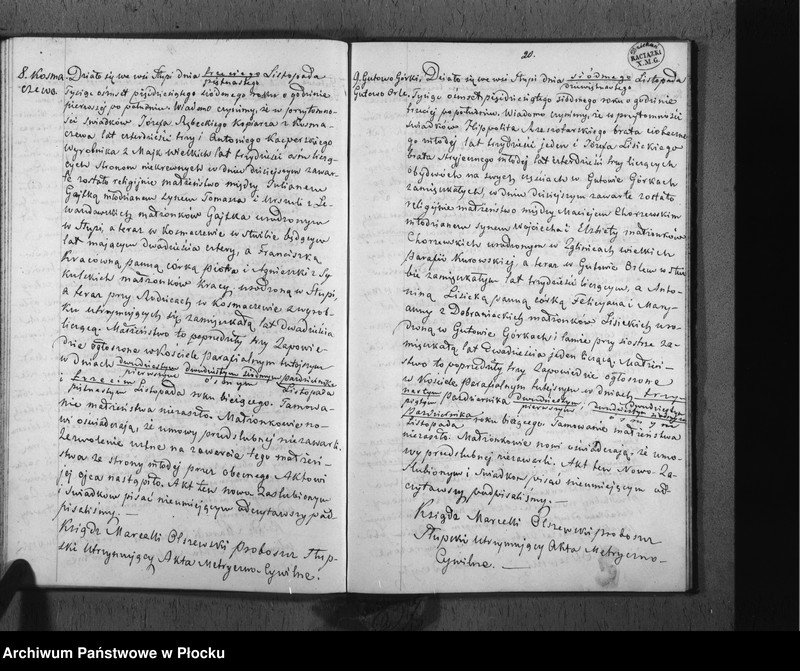 8. Kosma
czewo.
Działo się we wsi Słupi dnia trzeciego Listopada
piętnastego
Tysiąc ośmset pięćdziesiątego siódmego roku o godzinie
pierwszej po południu. Wiadomo czynimy, że w przytomno
ści świadków Józefa Rybeckiego Karczarza z Kosma
czewa lat czterdzieści trzy i Antoniego Kacperskiego
wyrobnika z Majk Wielkich lat trzydzieści osm liczą-
cych Stronom niekrewnych w dniu dzisiejszym zawar-
te zostało religijnie małżeństwo między Julianem
Gajtką młodzianem synem Tomasza i Urszuli z Le-
wandowskich małżonków Gajtka urodzonym
w Słupi, a teraz w Kosmaczewie w służbie będącym
lat mającym dwadzieścia cztery, a Franciszką
Kracówną panną córką Piotra i Agnieszki z Sy
kulskich małżonków Kracy, urodzoną w Słupi,
a teraz przy Rodzicach w Kosmaczewie z wyrob-
ku utrzymujących się zamieszkałą lat dwadzieścia
liczącą. Małżeństwo to poprzedziły trzy Zapowie-
dzie ogłoszone w Kościele Parafialnym tutejszym
w dniach dwudziestym dwudziestym siódmym października
pierwszym ósmym Listopada
i trzecim
piętnastym Listopada roku bieżącego. Tamowa-
nie małżeństwa niezaszło. Małżonkowie no-
wi oświadczają, że umowy przedślubnej niezawarli.
Zezwolenie ustne na zawarcie tego małżeń-
stwa ze strony młodej przez obecnego Aktowi
jej ojca nastąpiło. Akt ten nowo zaślubionym
i świadkom pisać nieumiejącym odczytawszy pod
pisaliśmy. —
Ksiądz Marcelli Olszewski Proboszcz Słup-
ski utrzymujący Akta Metryczno-Cywilne.
20.
Dziekan
RACIĄŻKI
X.M.G.
9. Gutowo Górki,
Gutowo Orle.
Działo się we wsi Słupi dnia siódmego Listopada
dziewiętnastego
Tysiąc ośmset pięćdziesiątego siódmego roku o godzinie
trzeciej po południu. Wiadomo czynimy, że w przytomności
świadków Hippolita Rzeszotarskiego brata ciotecznego
młodej lat trzydzieści jeden i Józefa Lisickiego
brata stryjecznego młodej lat czterdzieści trzy liczących
obydwóch na swych częściach w Gutowie Górkach
zamieszkałych, w dniu dzisiejszym zawarte zostało
religijnie małżeństwo między Maciejem Chorzewskim
młodzianem synem Wojciecha i Elżbiety małżonków
Chorzewskich urodzonym w Zglinicach wielkich
Parafii Kurowskiej, a teraz w Gutowie Orlem w służ
bie zamieszkałym lat trzydzieści liczącym, a Anto-
niną Lisicką panną córką Felicyana i Mary-
anny z Dobraniackich małżonków Lisickich uro-
dzoną w Gutowie Górkach i tamże przy siostrze za-
mieszkałą lat Dwadzieścia jeden liczącą. Małżeń-
stwo to poprzedziły trzy Zapowiedzie ogłoszone
w Kościele Parafialnym tutejszym w dniach trzy-
nastym Października dwudziestym i dwudziestym siódmym
piątym pierwszym ósmym
Października roku bieżącego. Tamowanie małżeństwa
Listopada
niezaszło. Małżonkowie nowi oświadczają, że umo-
wy przedślubnej niezawarli. Akt ten Nowo-Za-
ślubionym i świadkom pisać nieumiejącym od-
czytawszy podpisaliśmy. —
Ksiądz Marcelli Olszewski Proboszcz
Słupski utrzymujący Akta Metryczno-
Cywilne. —
Archiwum Państwowe w Płocku